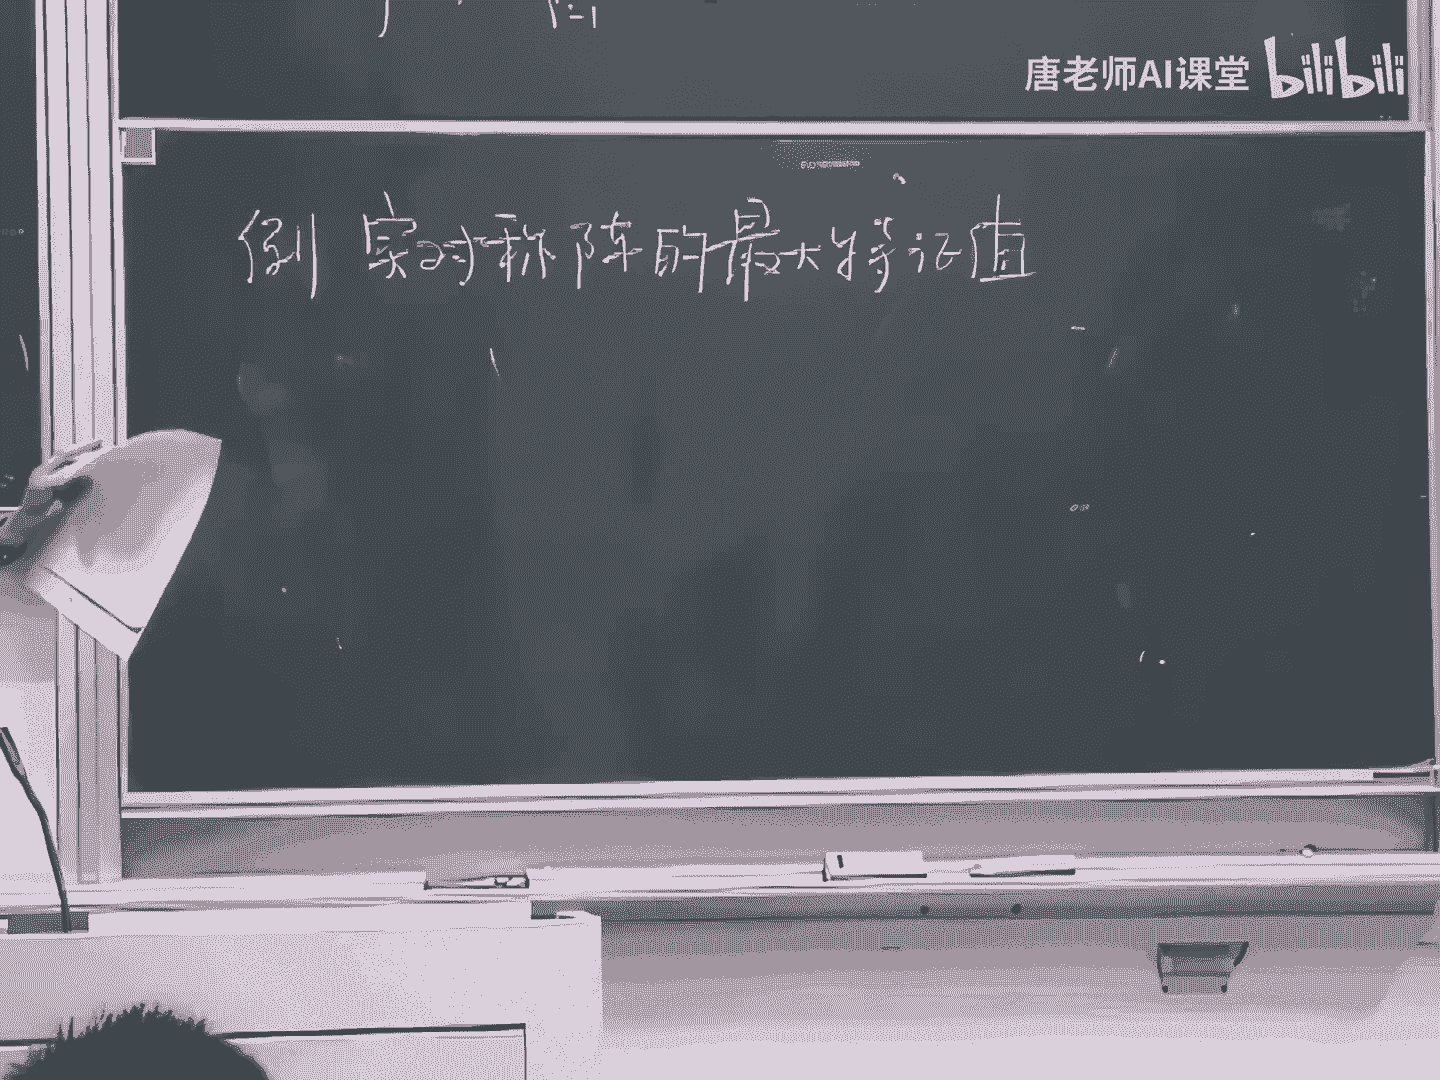 i=1
唐老师AI课堂 bilibili
例 实对称阵的最大特征值